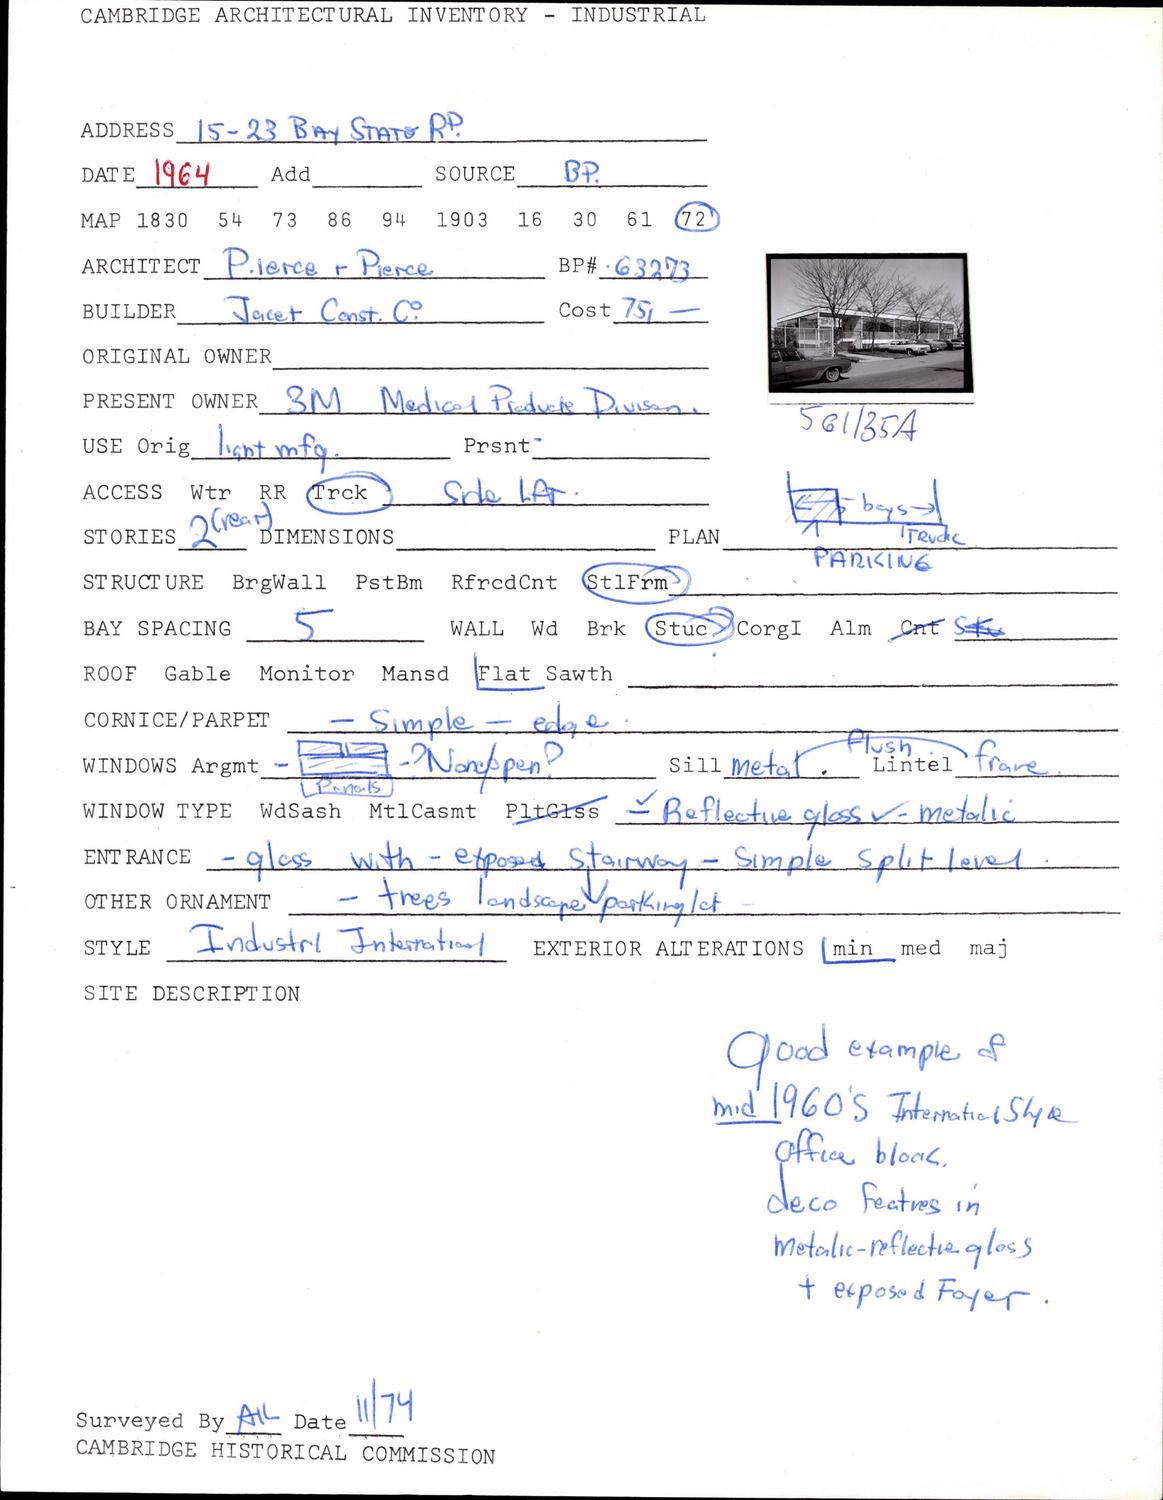 CAMBRIDGE ARCHITECTURAL INVENTORY - INDUSTRIAL
ADDRESS 15-23 BAY STATE RD.
DATE 1964 Add SOURCE BP.
MAP 1830 54 73 86 94 1903 16 30 61 72
ARCHITECT Pierce + Pierce BP# 63273
BUILDER Jacet Const. Co Cost 75, —
ORIGINAL OWNER
PRESENT OWNER 3M Medical Products Division.
561/35A
USE Orig light mfg. Prsnt -
ACCESS Wtr RR Trck Side Lot.
5 bays
Truck
STORIES 2 (rear) DIMENSIONS PLAN
PARKING
STRUCTURE BrgWall PstBm RfrcdCnt StlFrm
BAY SPACING 5 WALL Wd Brk Stuc CorgI Alm Cnt
ROOF Gable Monitor Mansd Flat Sawth
CORNICE/PARPET — Simple — edge.
WINDOWS Argmt - - ? Nonoppen? Sill metal. Flush Lintel frame
Panels
WINDOW TYPE WdSash MtlCasmt PltGlss - Reflective glass - metalic
ENTRANCE - glass with - exposed stairway - simple split level.
OTHER ORNAMENT - trees landscape parking lot -
STYLE Industrl International EXTERIOR ALTERATIONS min med maj
SITE DESCRIPTION
Good example of
mid 1960's International Style
office block.
deco featres in
Metalic-reflective glass
+ exposed Foyer.
Surveyed By AHL Date 11/74
CAMBRIDGE HISTORICAL COMMISSION